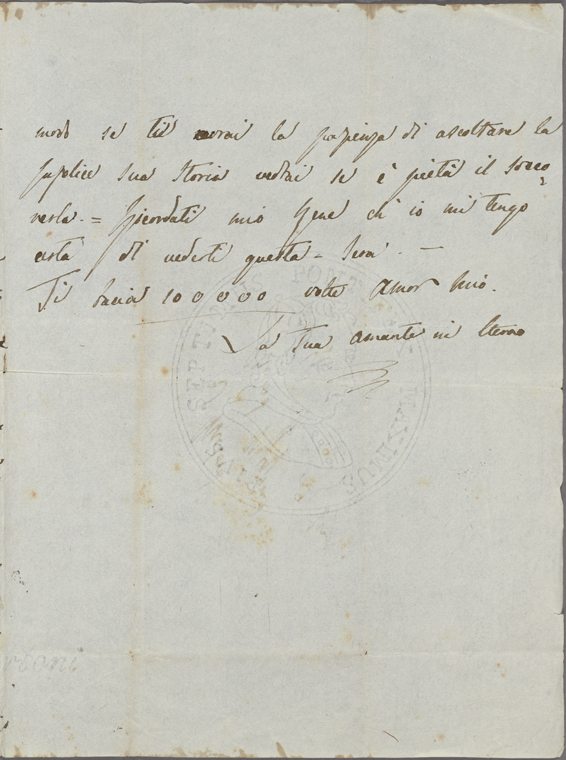 modo se tu avrai la pazienza di ascoltare la
suplice sua Storia vedrai se è pietà il socco
rerla. = Ricordati mio Bene ch'io mi tengo
certa di vederti questa Sera. —
Ti bacia 100000 volte Amor Mio.
La tua amante in Eterno
PIUS SEPTIMUS PONT MAXIMUS